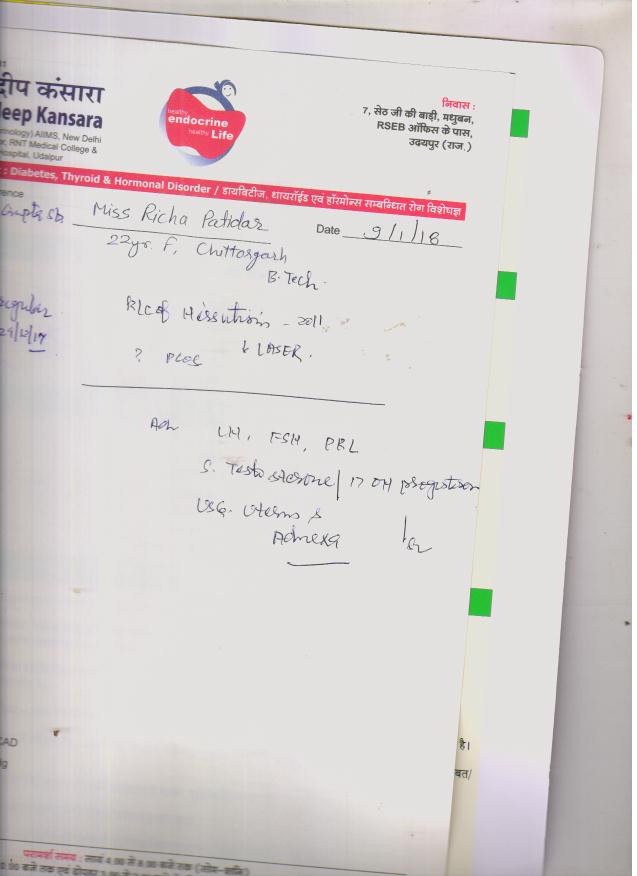 दीप कंसारा
deep Kansara
AIIMS, New Delhi
RNT Medical College &
Hospital, Udaipur
healthy
endocrine
healthy Life
निवास :
7, सेठ जी की बाड़ी, मधुबन,
RSEB ऑफिस के पास,
उदयपुर (राज.)
: Diabetes, Thyroid & Hormonal Disorder / डायबिटीज, थायरॉईड एवं हॉरमोन्स सम्बन्धित रोग विशेषज्ञ
Gupta Sb.
Miss Richa Patidar
Date 9/1/18
22yr. F, Chittorgarh
B.Tech.
regular
29/12/17
Hirsutism - 2011
LASER.
? PCOS
Adv LH, FSH, PRL
S. Testosterone / 17 OH progesteron
USG. Uterus &
Adnexa
CAD
है।
परामर्श समय : सायं 4.00 से 8.00 बजे तक